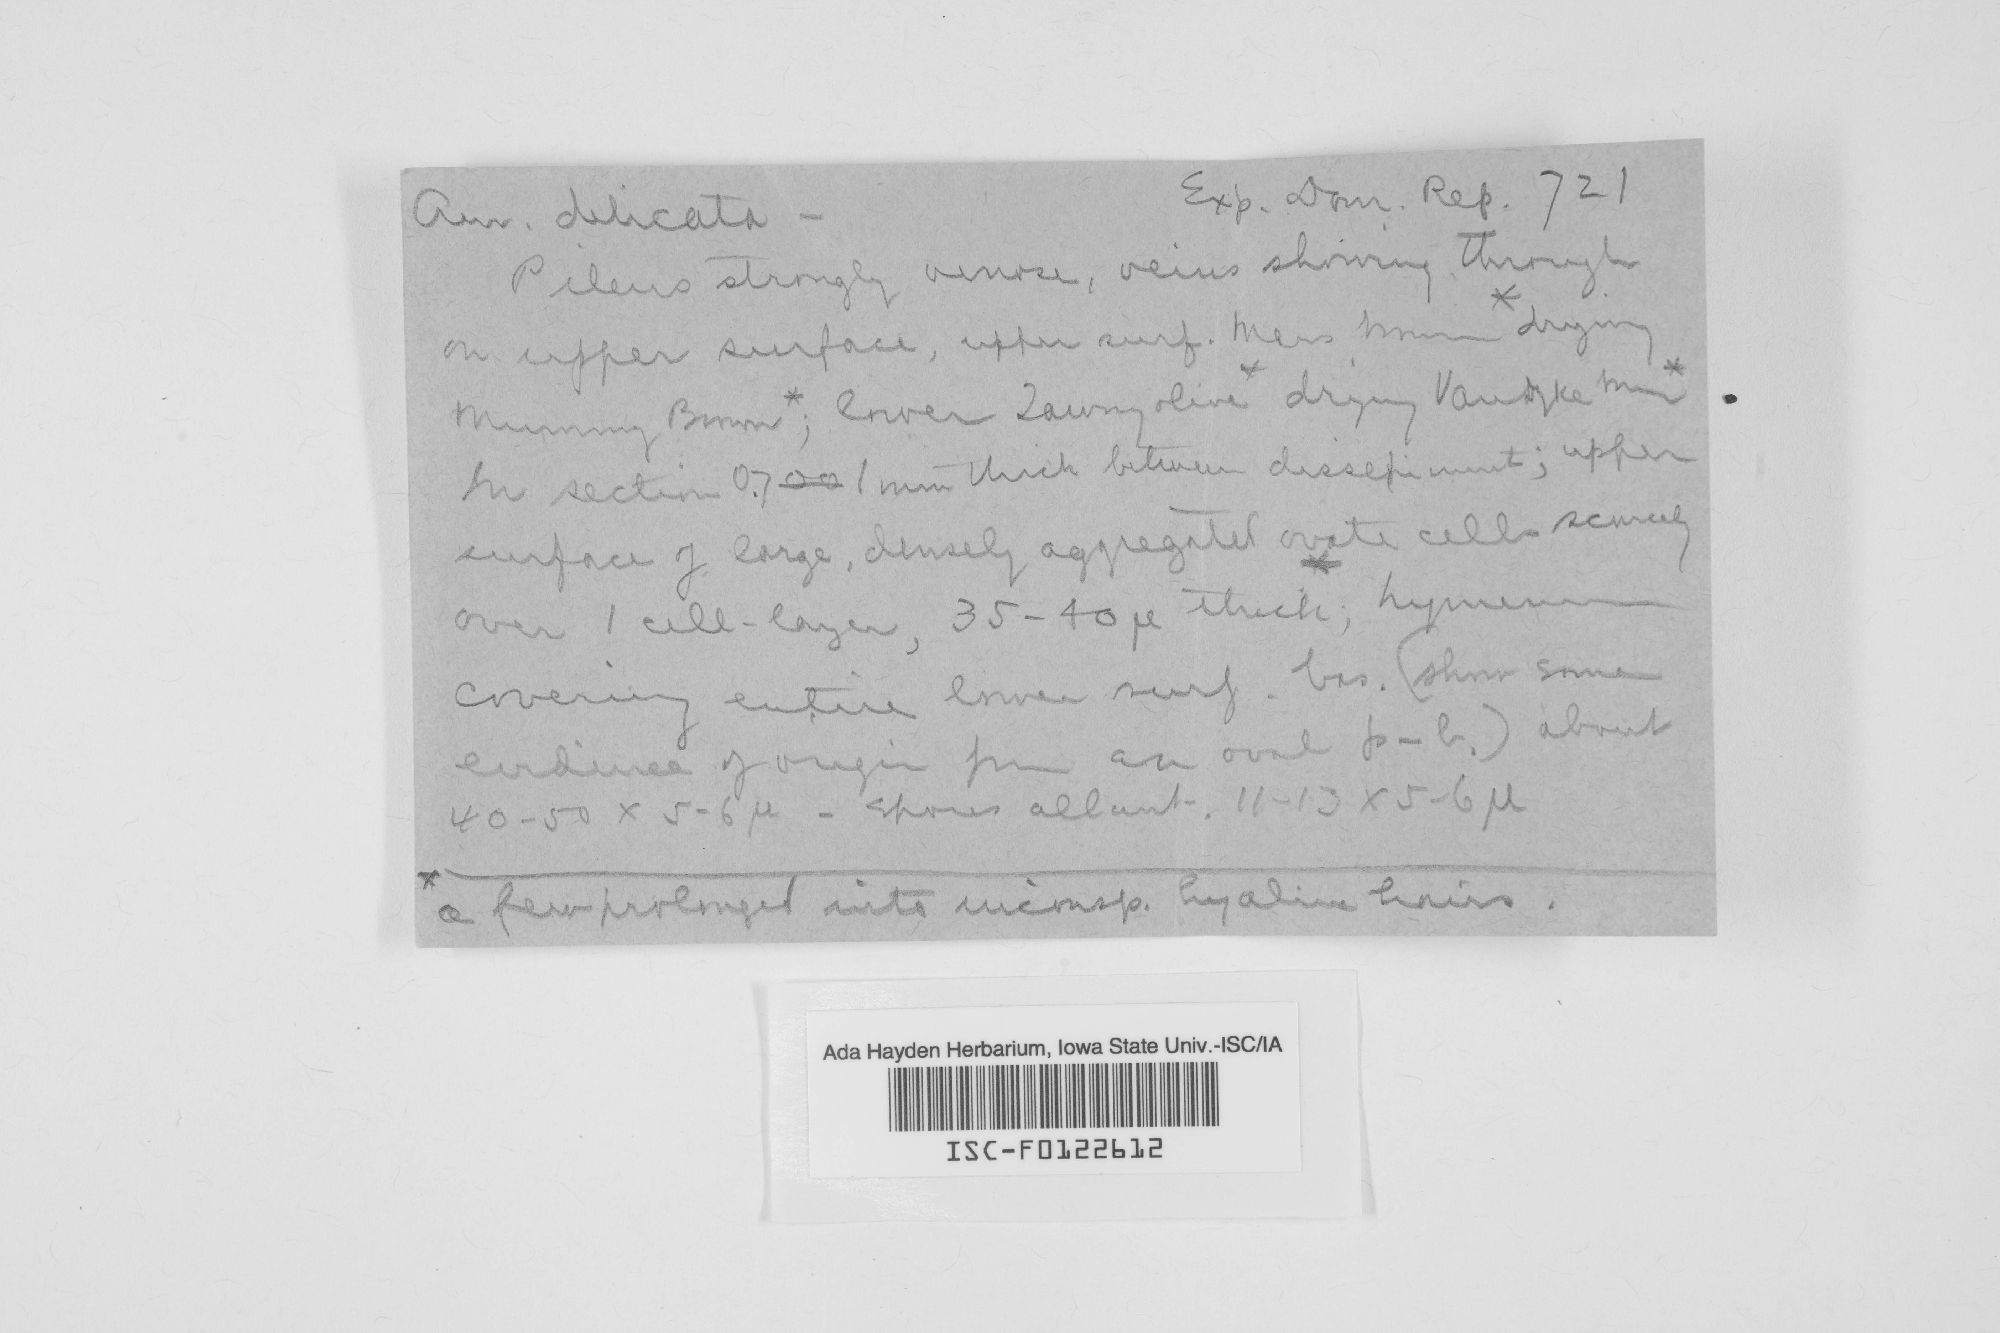 Aur. delicata – Exp. Dom. Rep. 721
Pileus strongly venose, veins showing through
on upper surface, upper surf. Mars brown* drying
Mummy Brown*; lower Tawny olive* drying Vandyke brn*
In section 0.700 1 mm thick between dissepiments; upper
surface of large, densely aggregated ovate cells scarcely
over 1 cell-layer, 35-40µ thick*; hymenium
covering entire lower surf. bas. (show some
evidence of origin from an oval p-b.) about
40-50 x 5-6µ – spores allant. 11-13 x 5-6µ
* a few prolonged into inconsp. hyaline hairs.
Ada Hayden Herbarium, Iowa State Univ.-ISC/IA
ISC-F0122612